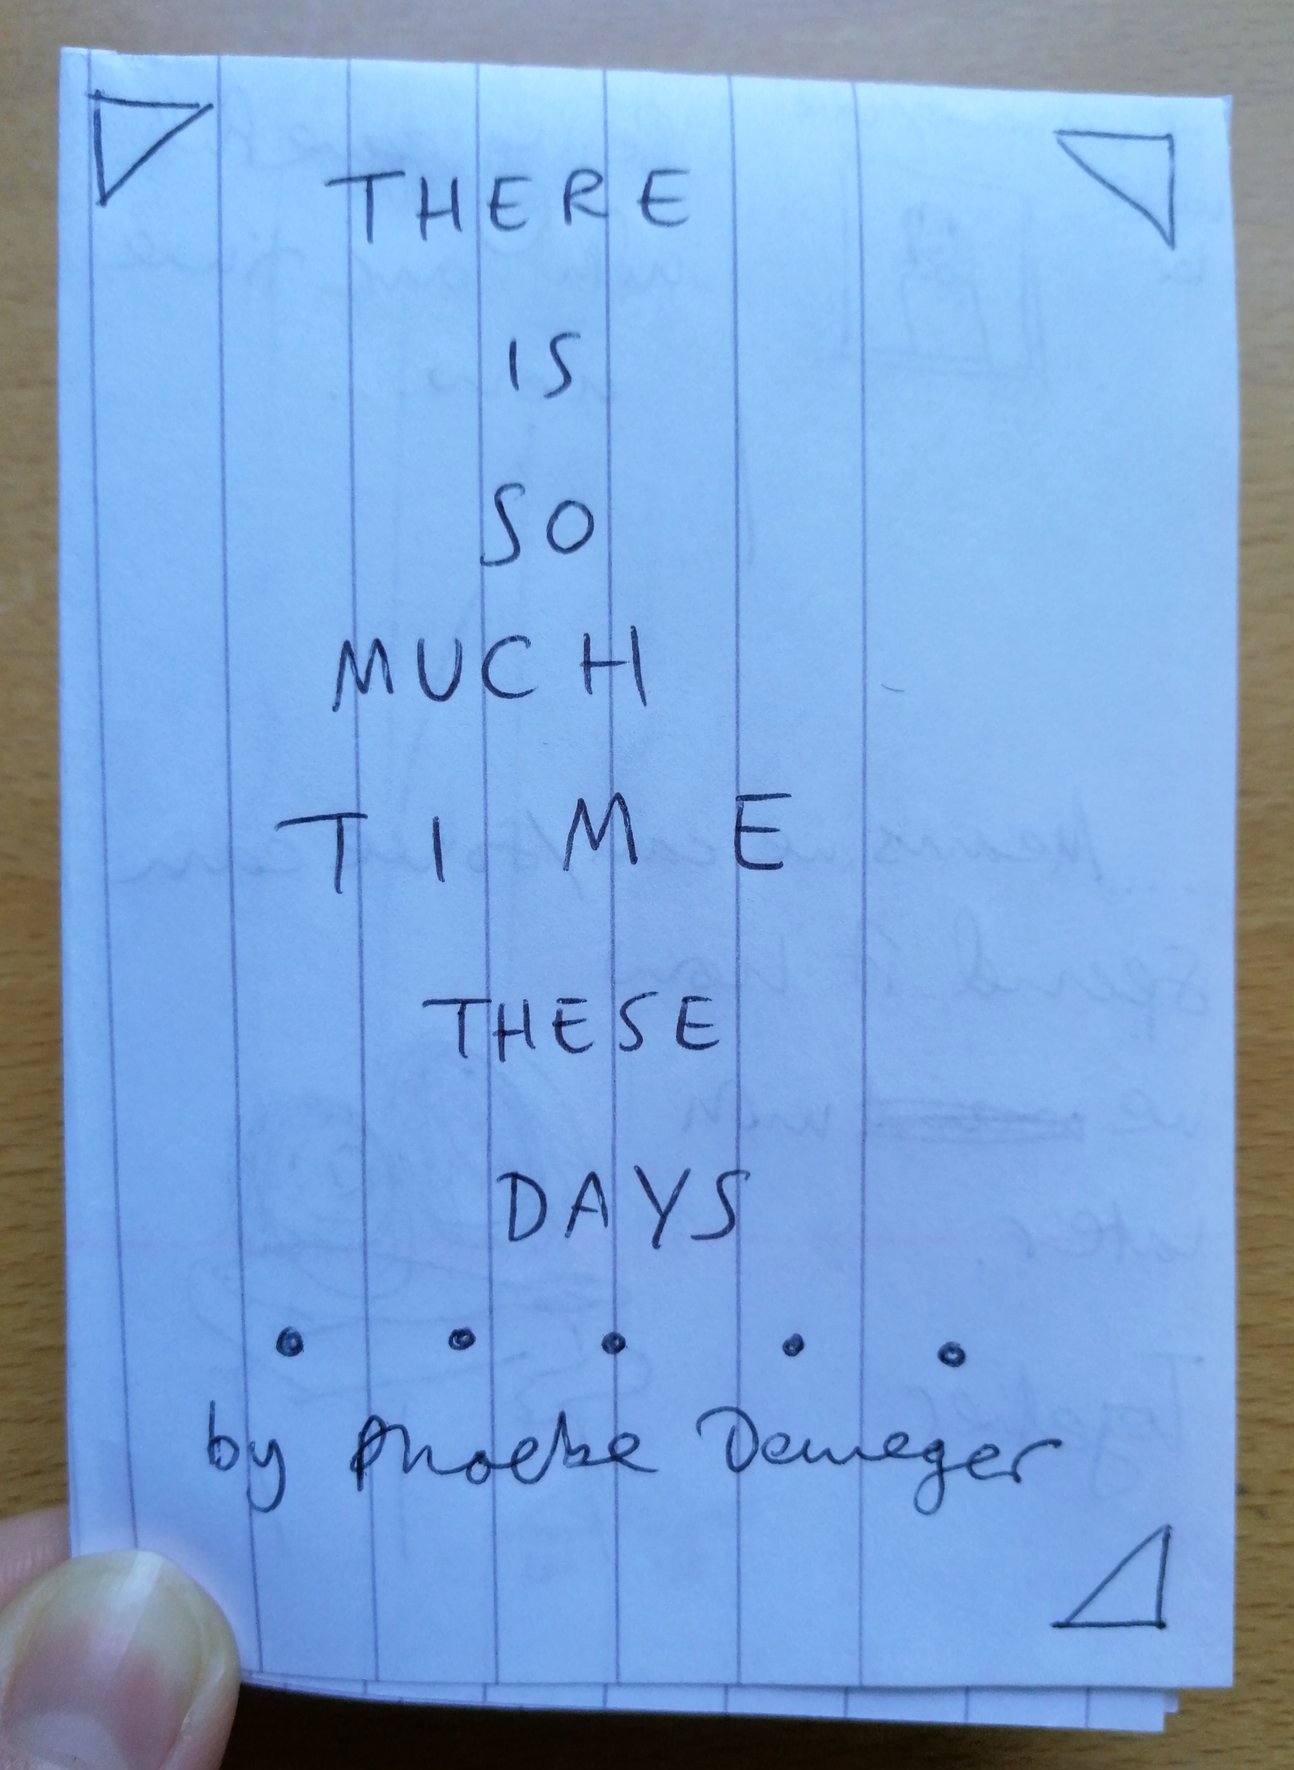 THERE
IS
SO
MUCH
TIME
THESE
DAYS
by Phoebe Demeger